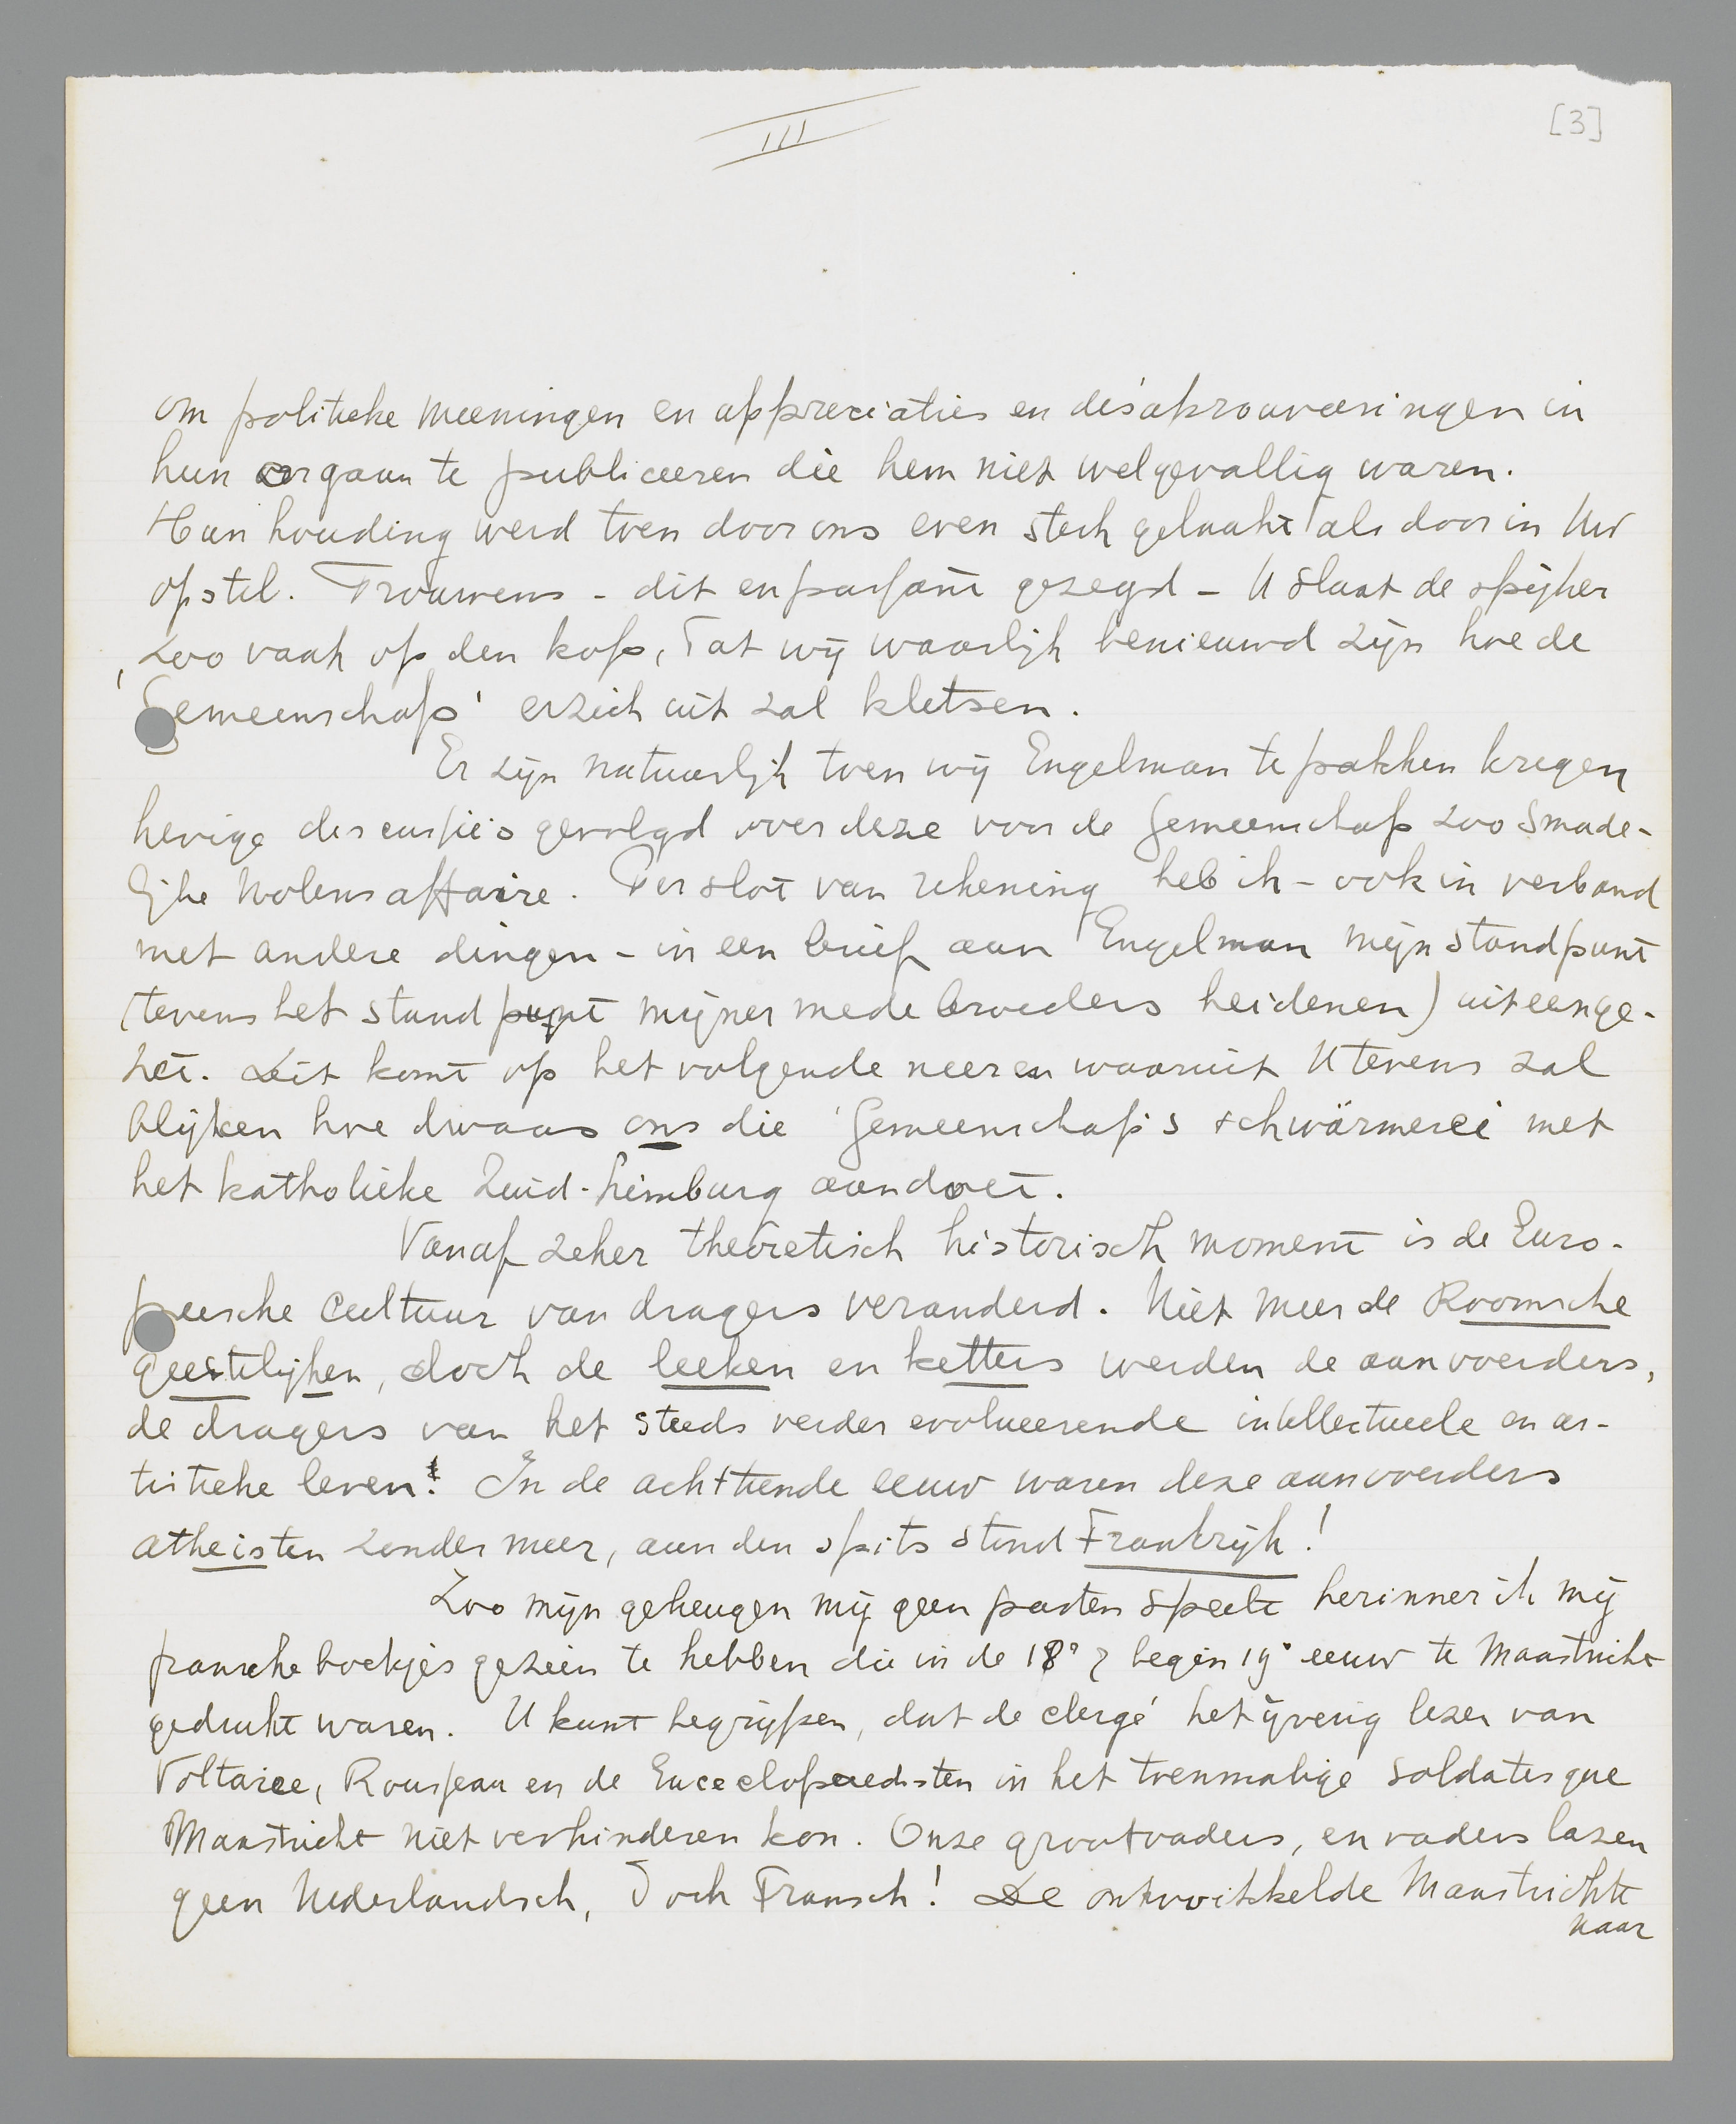 III
[3]
om politieke meeningen en appreciaties en désaprouveeringen in
hun orgaan te publiceeren die hem niet welgevallig waren.
Hun houding werd toen door ons even sterk gelaakt als door in Uw
opstel. Trouwens - dit en passant gezegd - U slaat de spijker
zoo vaak op den kop, dat wij waarlijk benieuwd zijn hoe de
'Gemeenschap' er zich uit zal kletsen.
Er zijn natuurlijk toen wij Engelman te pakken kregen
hevige discussie's gevolgd over deze voor de Gemeenschap zoo smade-
lijke Nolens affaire. Per slot van rekening heb ik - ook in verband
met andere dingen - in een brief aan Engelman mijn standpunt
(tevens het standpunt mijner medebroeders heidenen) uiteenge-
zet. Dit komt op het volgende neer en waaruit U tevens zal
blijken hoe dwaas ons die 'Gemeenschap's schwärmerei met
het katholieke Zuid-Limburg aandoet.
Vanaf zeker theoretisch historisch moment is de Euro-
peesche Cultuur van dragers veranderd. Niet meer de Roomsche
geestelijken, doch de leeken en ketters werden de aanvoerders,
de dragers van het steeds verder evolueerende intellectueele en ar-
tistieke leven! In de achttiende eeuw waren deze aanvoerders
atheisten zonder meer, aan den spits stond Frankrijk!
Zoo mijn geheugen mij geen parten speelt herinner ik mij
fransche boekjes gezien te hebben die in de 18e & begin 19e eeuw te Maastricht
gedrukt waren. U kunt begrijpen, dat de clergé het ijverig lezen van
Voltaire, Rousseau en de Encyclopaedisten in het toenmalige soldatesque
Maastricht niet verhinderen kon. Onze grootvaders, en vaders lazen
geen Nederlandsch, doch Fransch! De ontwikkelde Maastrichte
naar